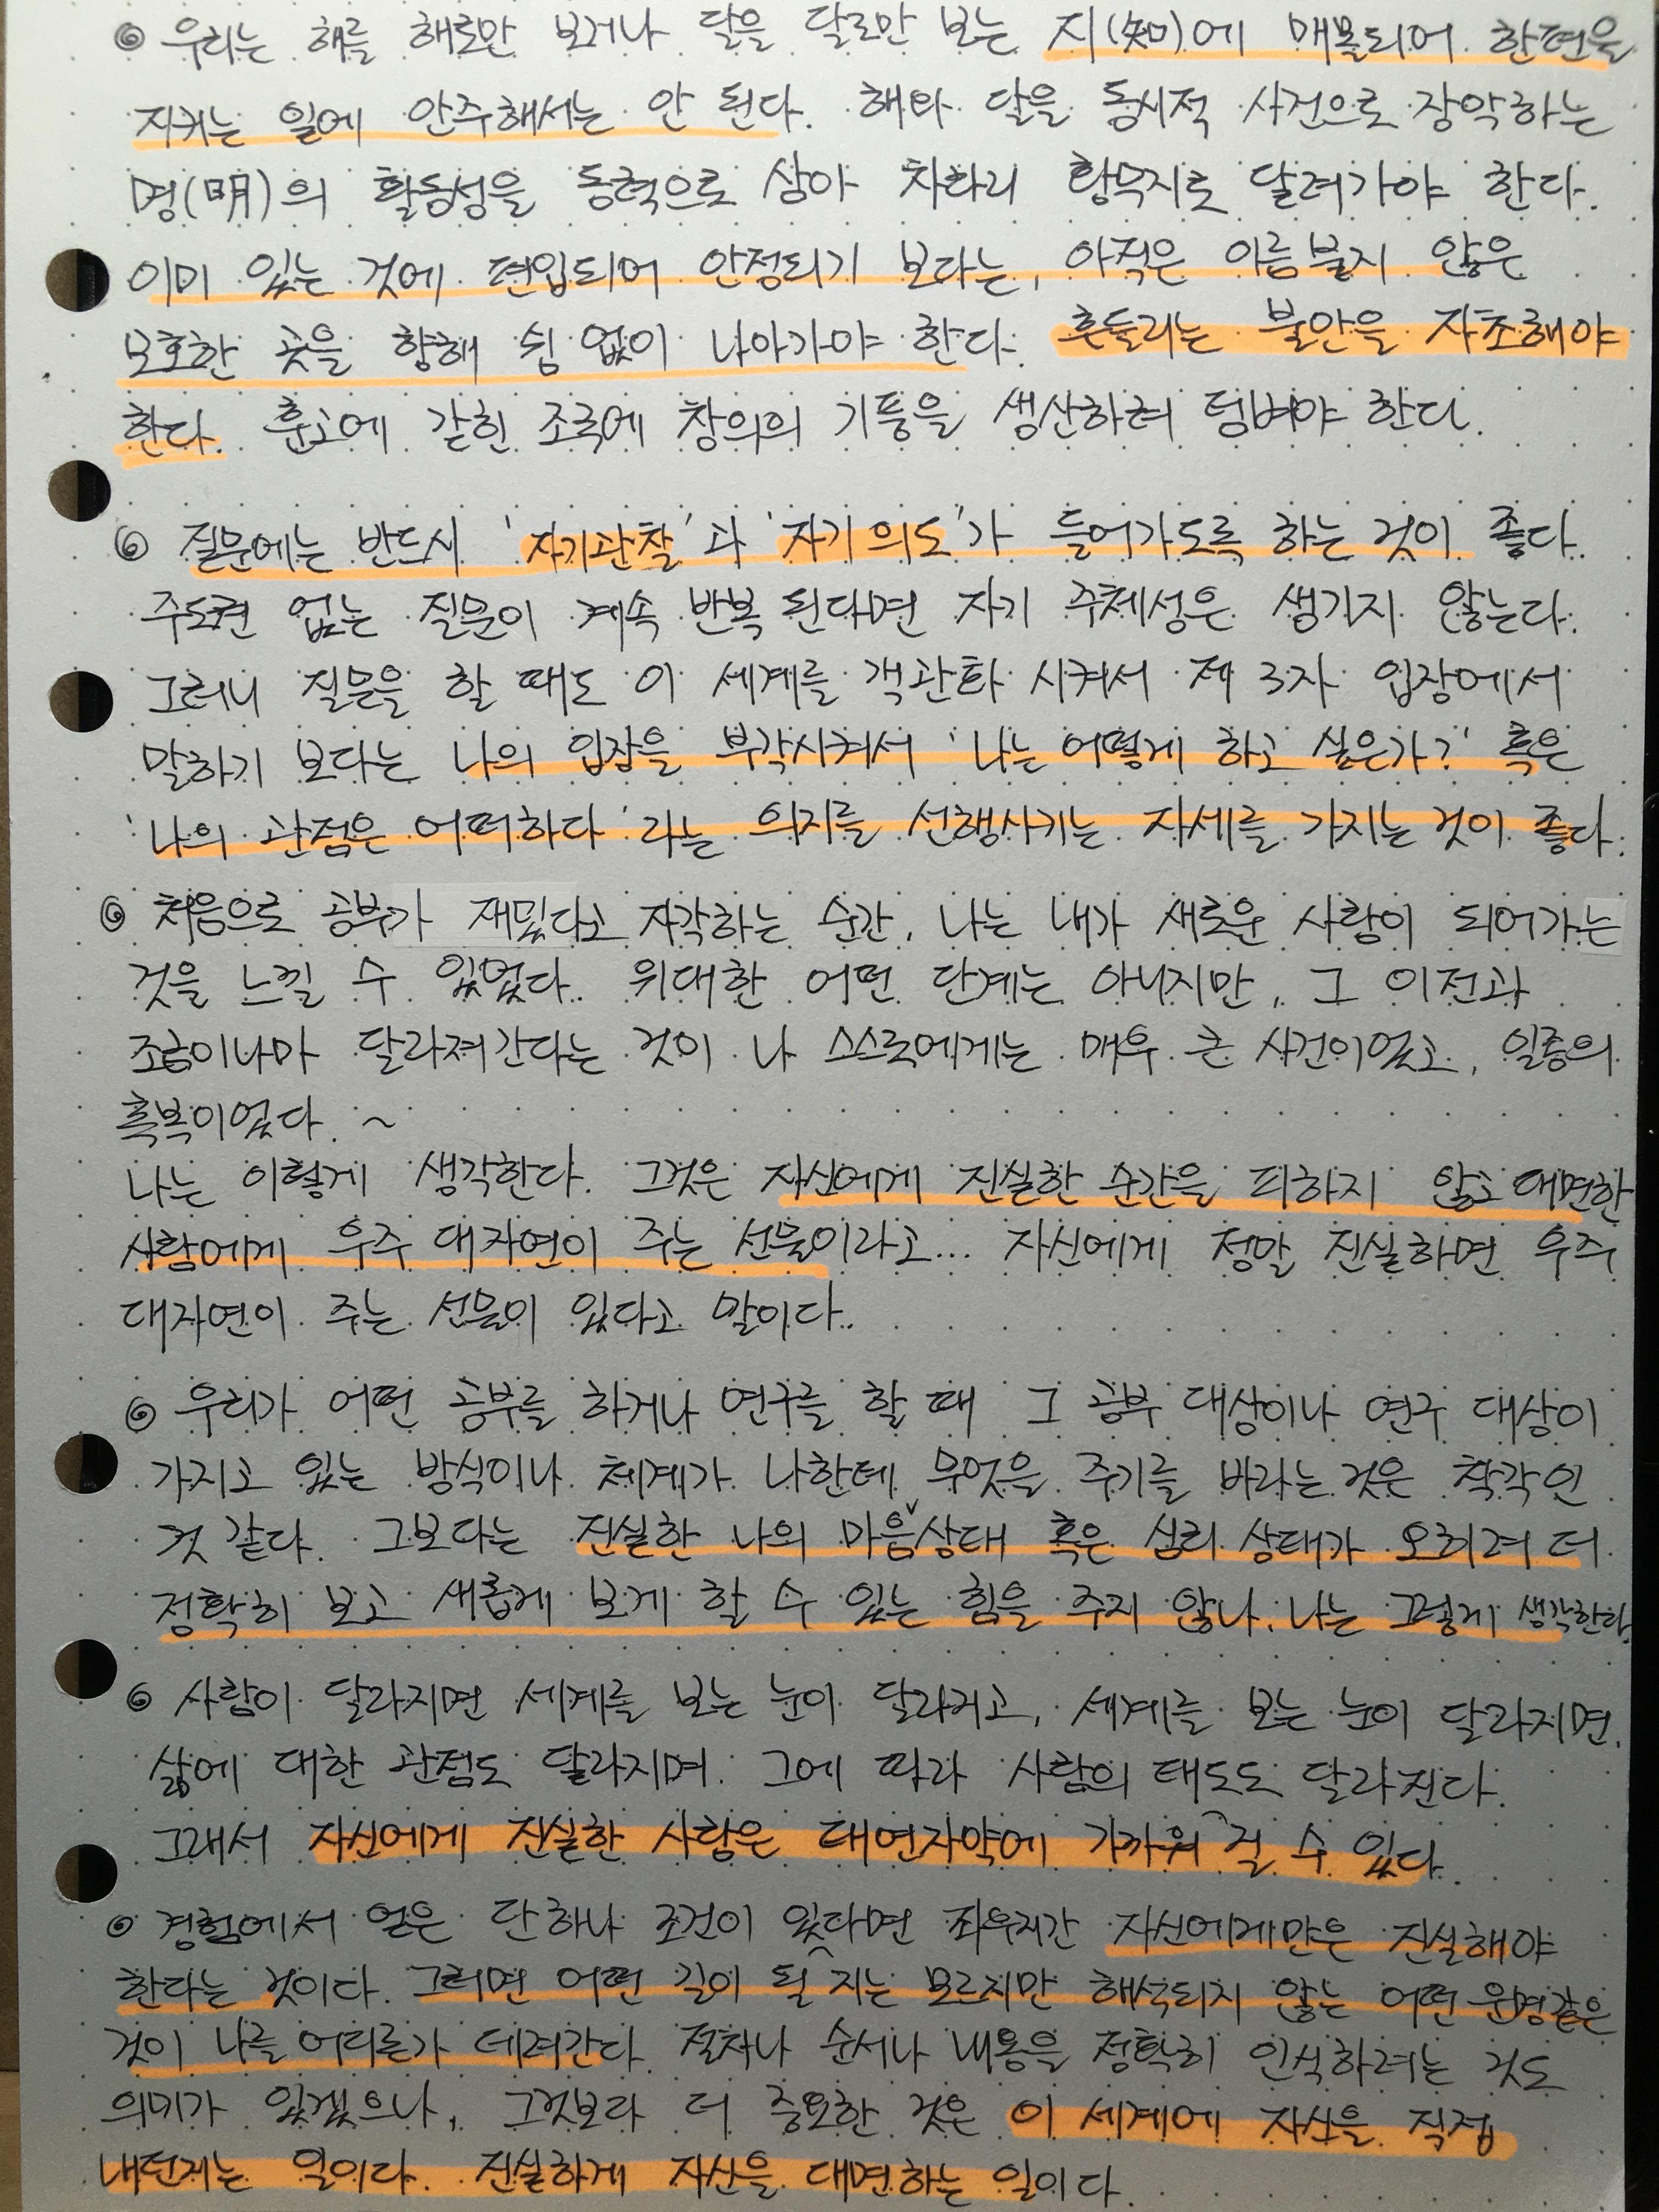 우리는 해를 해로만 보거나 달을 달로만 보는 지(知)에 매몰되어 한편을
지키는 일에 안주해서는 안 된다. 해와 달을 동시적 사건으로 장악하는
명(明)의 활동성을 동력으로 삼아 차라리 황무지로 달려가야 한다.
이미 있는 것에 편입되어 안정되기 보다는, 아직은 이름붙지 않은
모호한 곳을 향해 쉼 없이 나아가야 한다. 흔들리는 불안을 자초해야
한다. 훈고에 갇힌 조국에 창의의 기풍을 생산하려 덤벼야 한다.
질문에는 반드시 '자기관찰'과 '자기의도'가 들어가도록 하는 것이 좋다.
주도권 없는 질문이 계속 반복 된다면 자기 주체성은 생기지 않는다.
그러니 질문을 할 때도 이 세계를 객관화 시켜서 제 3자 입장에서
말하기 보다는 나의 입장을 부각시켜서 '나는 어떻게 하고 싶은가?' 혹은
'나의 관점은 어떠하다'라는 의지를 선행시키는 자세를 가지는 것이 좋다.
처음으로 공부가 재밌다고 자각하는 순간, 나는 내가 새로운 사람이 되어가는
것을 느낄 수 있었다. 위대한 어떤 단계는 아니지만, 그 이전과
조금이나마 달라져간다는 것이 나 스스로에게는 매우 큰 사건이었고, 일종의
축복이었다. ~
나는 이렇게 생각한다. 그것은 자신에게 진실한 순간을 피하지 않고 대면한
사람에게 우주 대자연이 주는 선물이라고... 자신에게 정말 진실하면 우주
대자연이 주는 선물이 있다고 말이다..
우리가 어떤 공부를 하거나 연구를 할 때 그 공부 대상이나 연구 대상이
가지고 있는 방식이나 체계가 나한테 무엇을 주기를 바라는 것은 착각인
것 같다. 그보다는 진실한 나의 마음상태 혹은 심리 상태가 오히려 더
정확히 보고 새롭게 보게 할 수 있는 힘을 주지 않나. 나는 그렇게 생각한다.
사람이 달라지면 세계를 보는 눈이 달라지고, 세계를 보는 눈이 달라지면
삶에 대한 관점도 달라지며. 그에 따라 사람의 태도도 달라진다.
그래서 자신에게 진실한 사람은 태연자약에 가까워 질 수 있다.
경험에서 얻은 단 하나 조건이 있다면 좌우지간 자신에게만은 진실해야
한다는 것이다. 그러면 어떤 길이 될 지는 모르지만 해석되지 않는 어떤 운명같은
것이 나를 어디론가 데려간다. 절차나 순서나 내용을 정확히 인식하려는 것도
의미가 있겠으나, 그것보다 더 중요한 것은 이 세계에 자신을 직접
내던지는 일이다. 진실하게 자신을 대면하는 일이다.